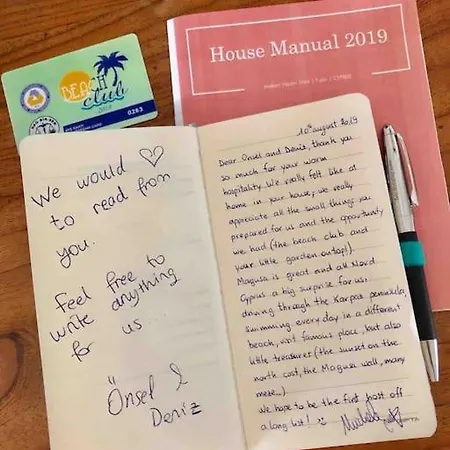 House Manual 2019
BEACH
club
0263
We would ♡
to read from
you.
Feel free to
write anything
for us
Önsel &
Deniz
10th august 2019
Dear Onsel and Deniz, thank you
so much for your warm
hospitality. We really felt like at
home in your house, we really
appreciate all the small thing you
prepared for us and the opportunity
we had (the beach club and
your little garden ontop!).
Magusa is great and all Nord
Cyprus a big surprise for us:
driving through the Karpas peninsula,
swimming every day in a different
beach, visit famous place, but also
little treasures (the sunset on the
north cost, the Magusa wall, many
more...)
We hope to be the first post off
a long list! :)